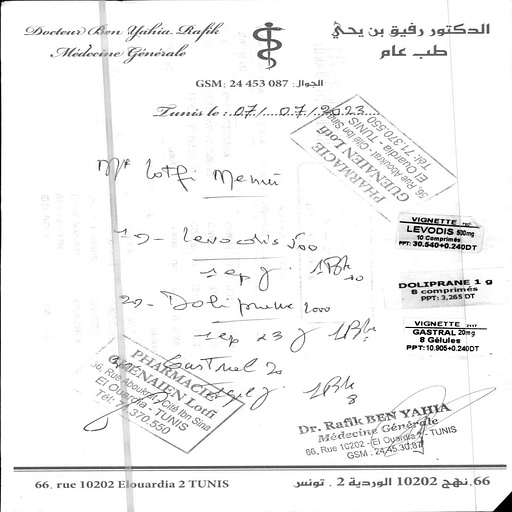 Docteur Ben Yahia Rafik
Médecine Générale
الدكتور رفيق بن يحيّ
طب عام
GSM: 24 453 087 :الجوال
Tunis le : 07/07/2023
PHARMACIE
GUENAIEN Lotfi
36, Rue Aboukral - Cité Ibn Sina
El Ouardia - TUNIS
Tél: 71.370.550
Mr Lotfi
1)- Levodis 500
1cp j. 1Bte
VIGNETTE
LEVODIS 500mg
10 Comprimés
PPT: 30.540+0.240DT
2)- Doliprane 1000
1cp x3 j 1Bte
DOLIPRANE 1 g
8 comprimés
PPT: 3,265 DT
Gastral 20
1Bte
8
VIGNETTE
GASTRAL 20mg
8 Gélules
PPT:10.905+0.240DT
PHARMACIE
GUENAIEN Lotfi
36, Rue Aboukral - Cité Ibn Sina
El Ouardia - TUNIS
Tél: 71.370.550
Dr. Rafik BEN YAHIA
Médecine Générale
66, Rue 10202 - El Ouardia 2 - TUNIS
GSM : 24.45.30.87
66, rue 10202 Elouardia 2 TUNIS
66، نهج 10202 الوردية 2 . تونس